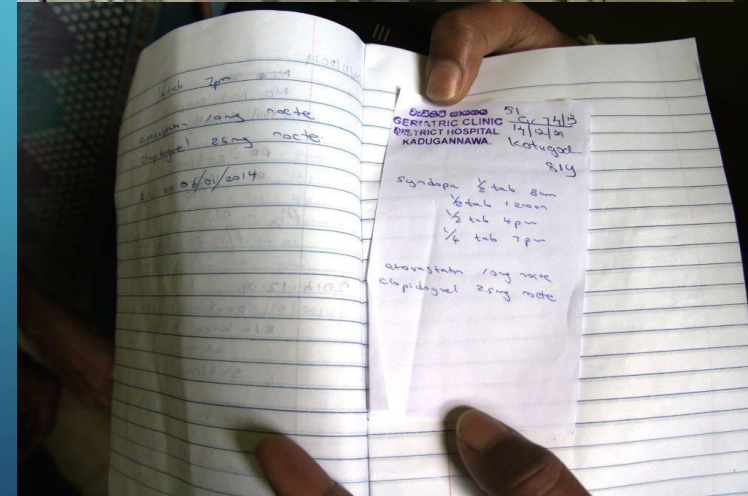 tab 7pm
atorvastatin 10mg nocte
clopidogrel 25mg nocte
06/01/2014
වැඩිහිටි සායනය
GERIATRIC CLINIC
DISTRICT HOSPITAL
KADUGANNAWA.
51
74/13
Kotugod
81y
Syndopa ½ tab 8am
½ tab 12noon
½ tab 4pm
¼ tab 7pm
atorvastatin 10mg nocte
clopidogrel 25mg nocte